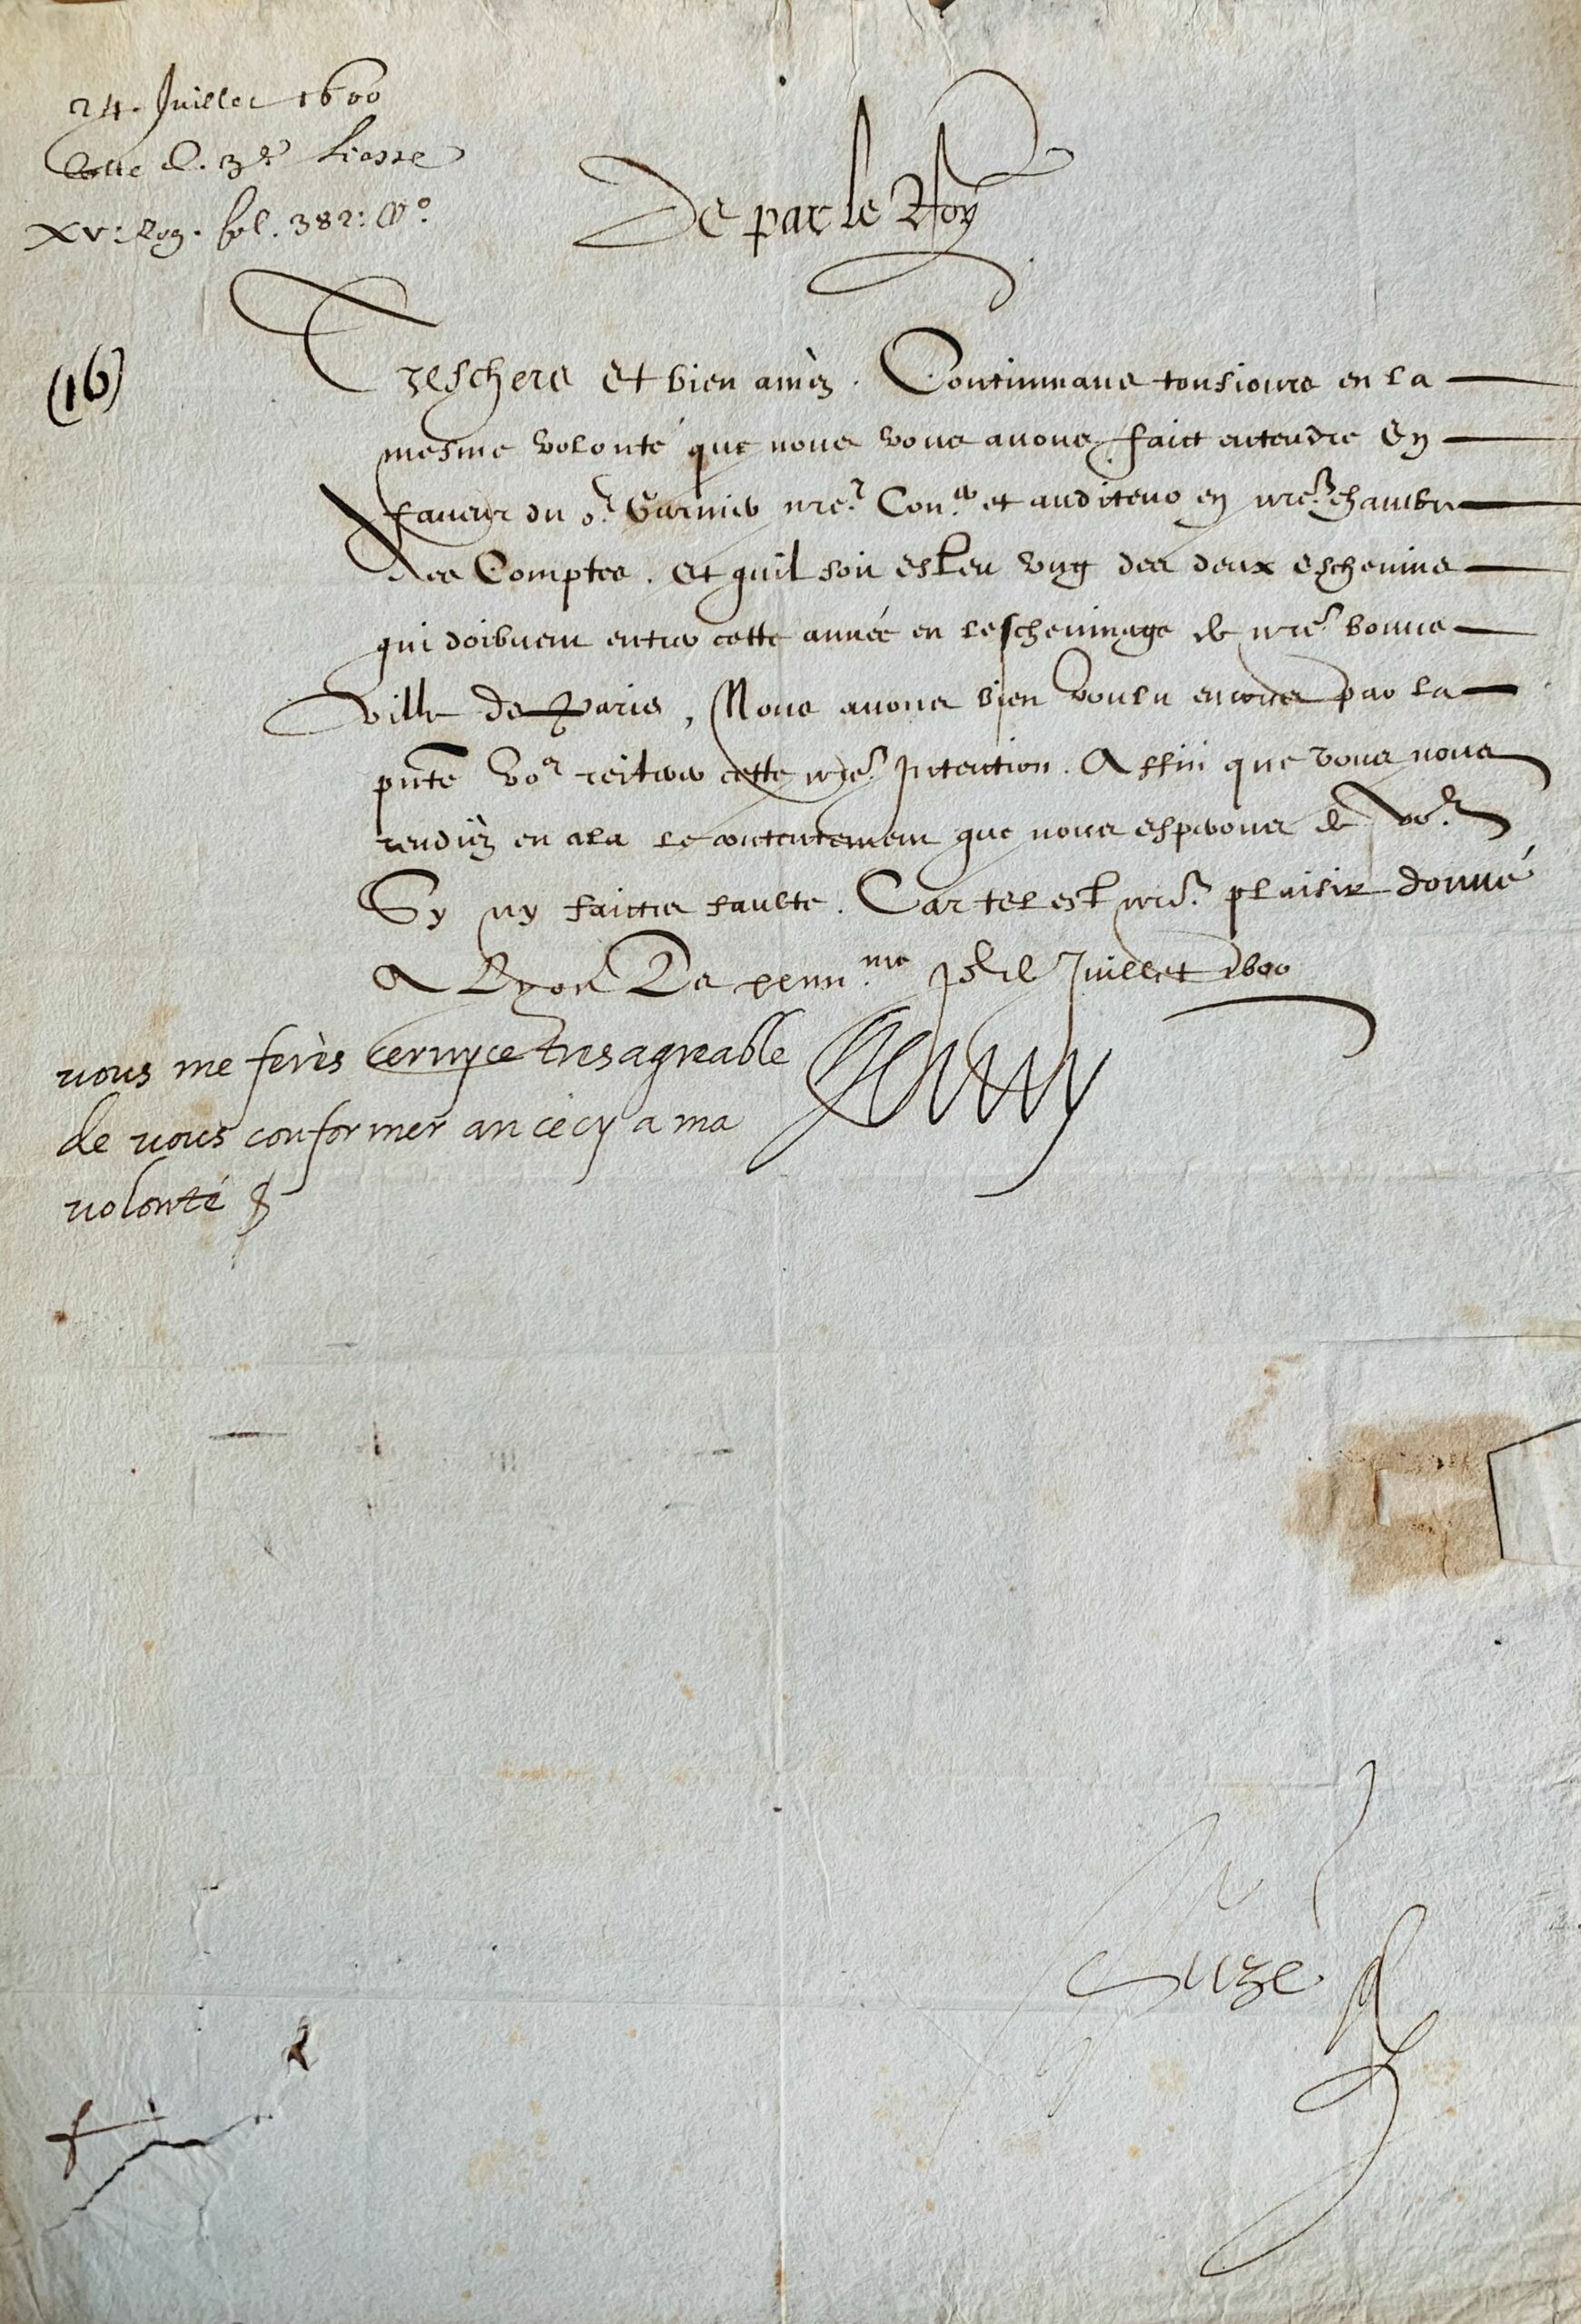 24. Juillet 1600
Cotte d. 3e Liasse
XV: Reg. fol. 382: Vo.
De par le Roy
(16)
Treschers et bien amèz. Continuans tousiours en la
mesme volonté que nous vous auons faict entendre en
faueur du Sr. Garnier nre. Conser et auditeur en nre. chambre
des Comptes. et quil soit esleu vng des deux escheuins
qui doibuent entrer cette année en lescheuinage de nre. bonne
ville de Paris, Nous auons bien voulu encores par la
pnte vos reiterer cette nre. Intention. Affin que vous nous
rendiéz en cela le contentement que nous esperons de vos.
Sy ny faictes faulte. Car tel est nre. plaisir donné
A Lyon Le me Jor de Juillet 1600
vous me ferès cervyce tres agreable
de vous conformer an cecy a ma
volonté
Henry
Ruzé